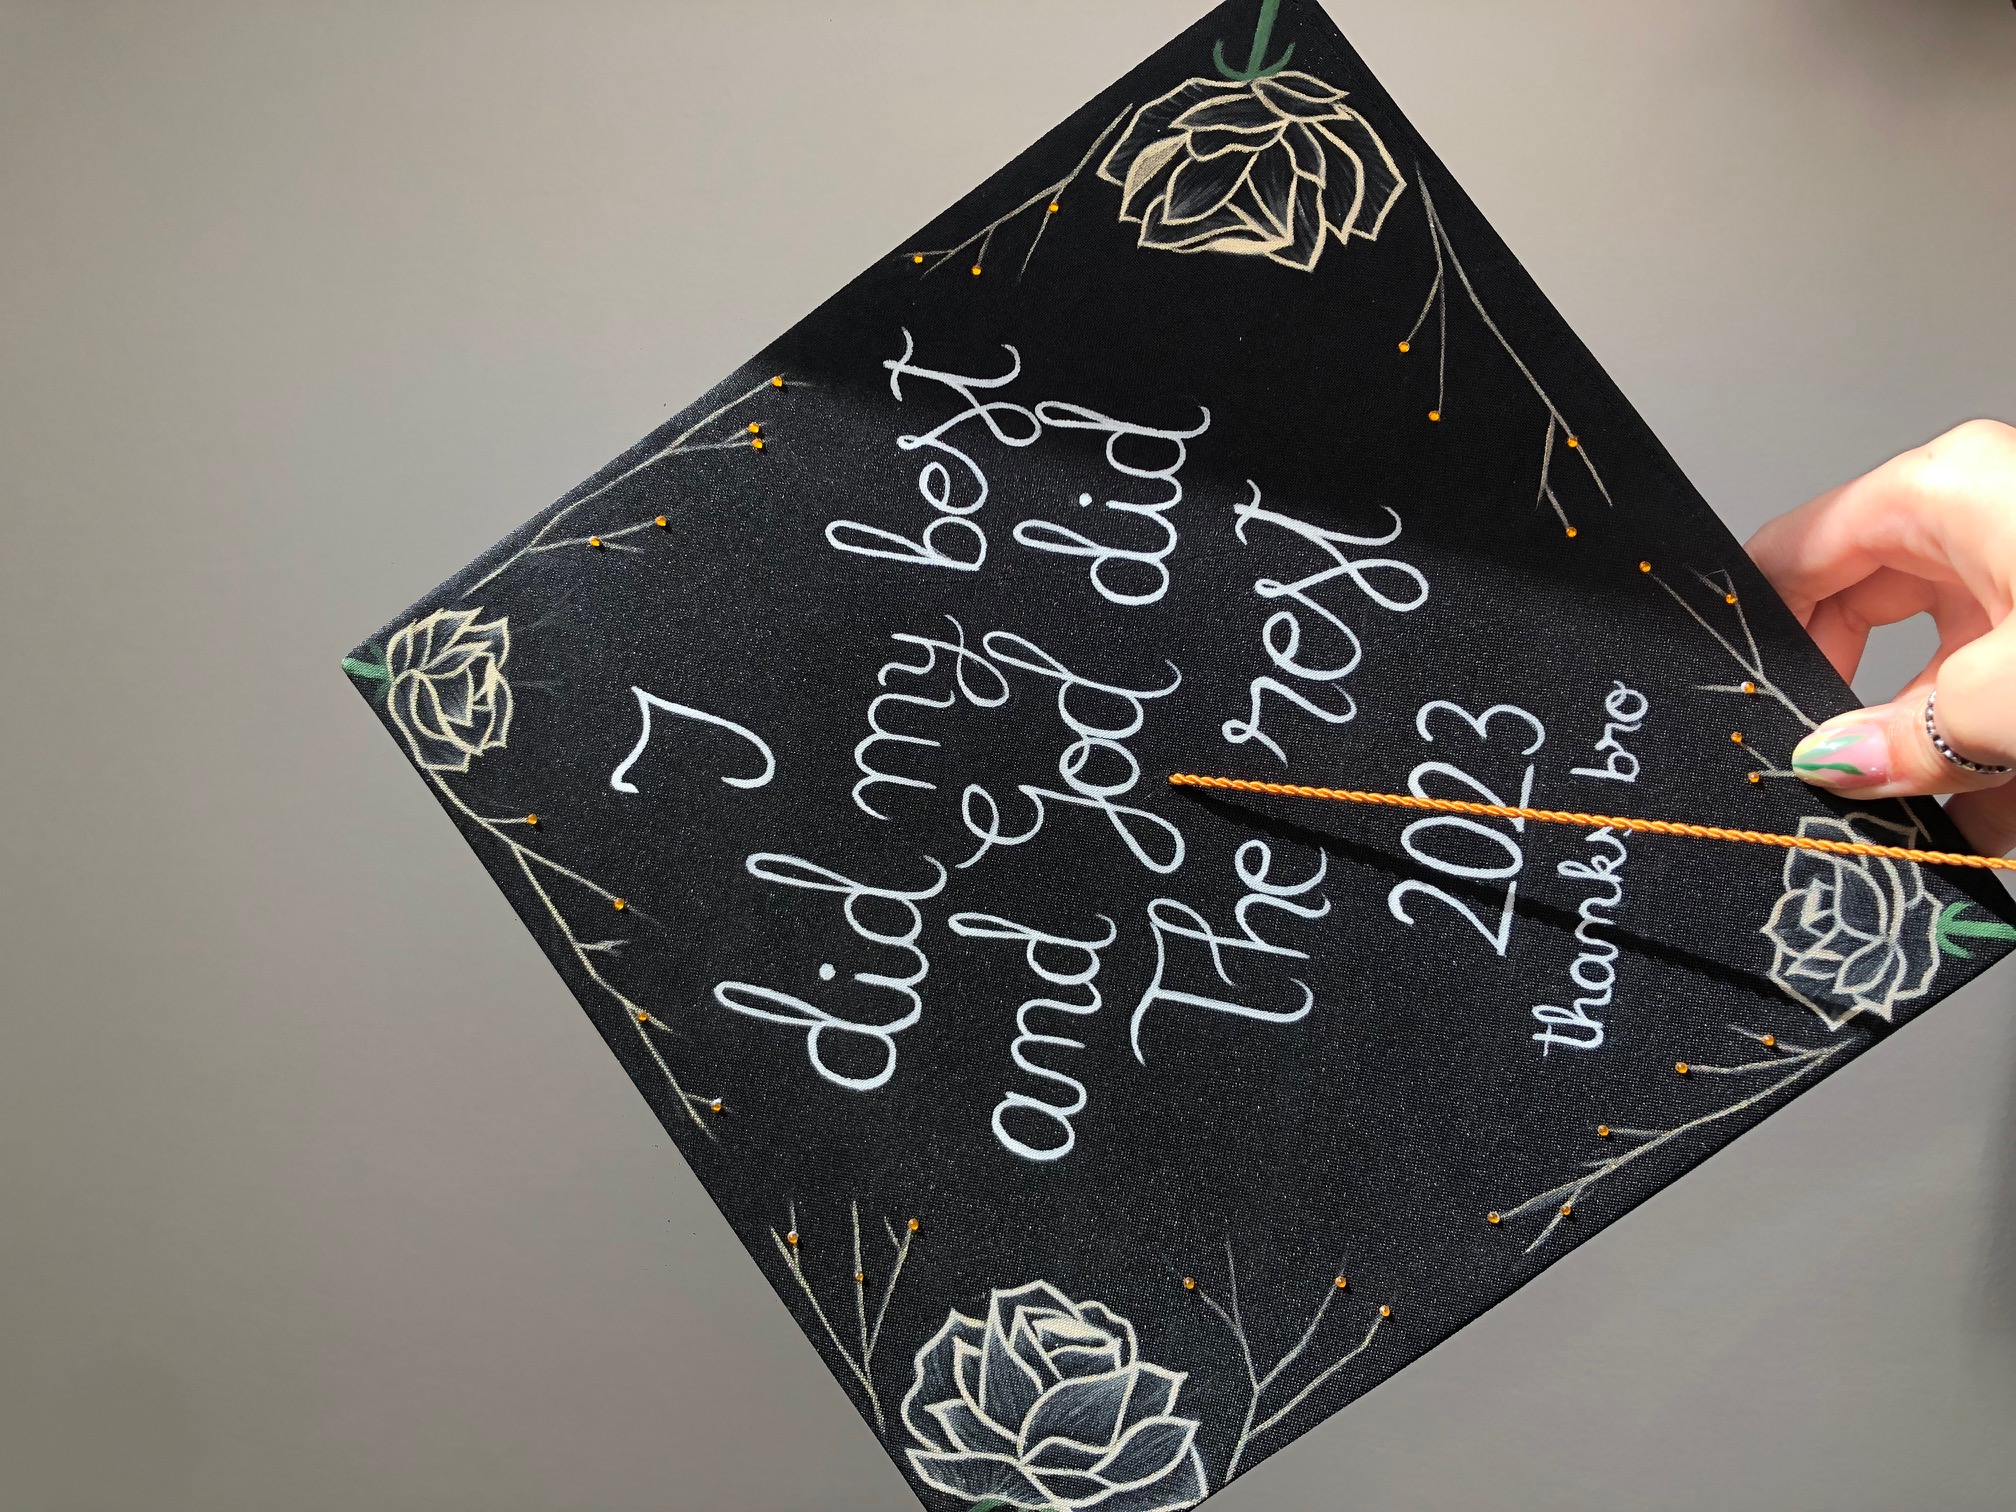 I
did my best
and God did
The rest
2023
thanks bro